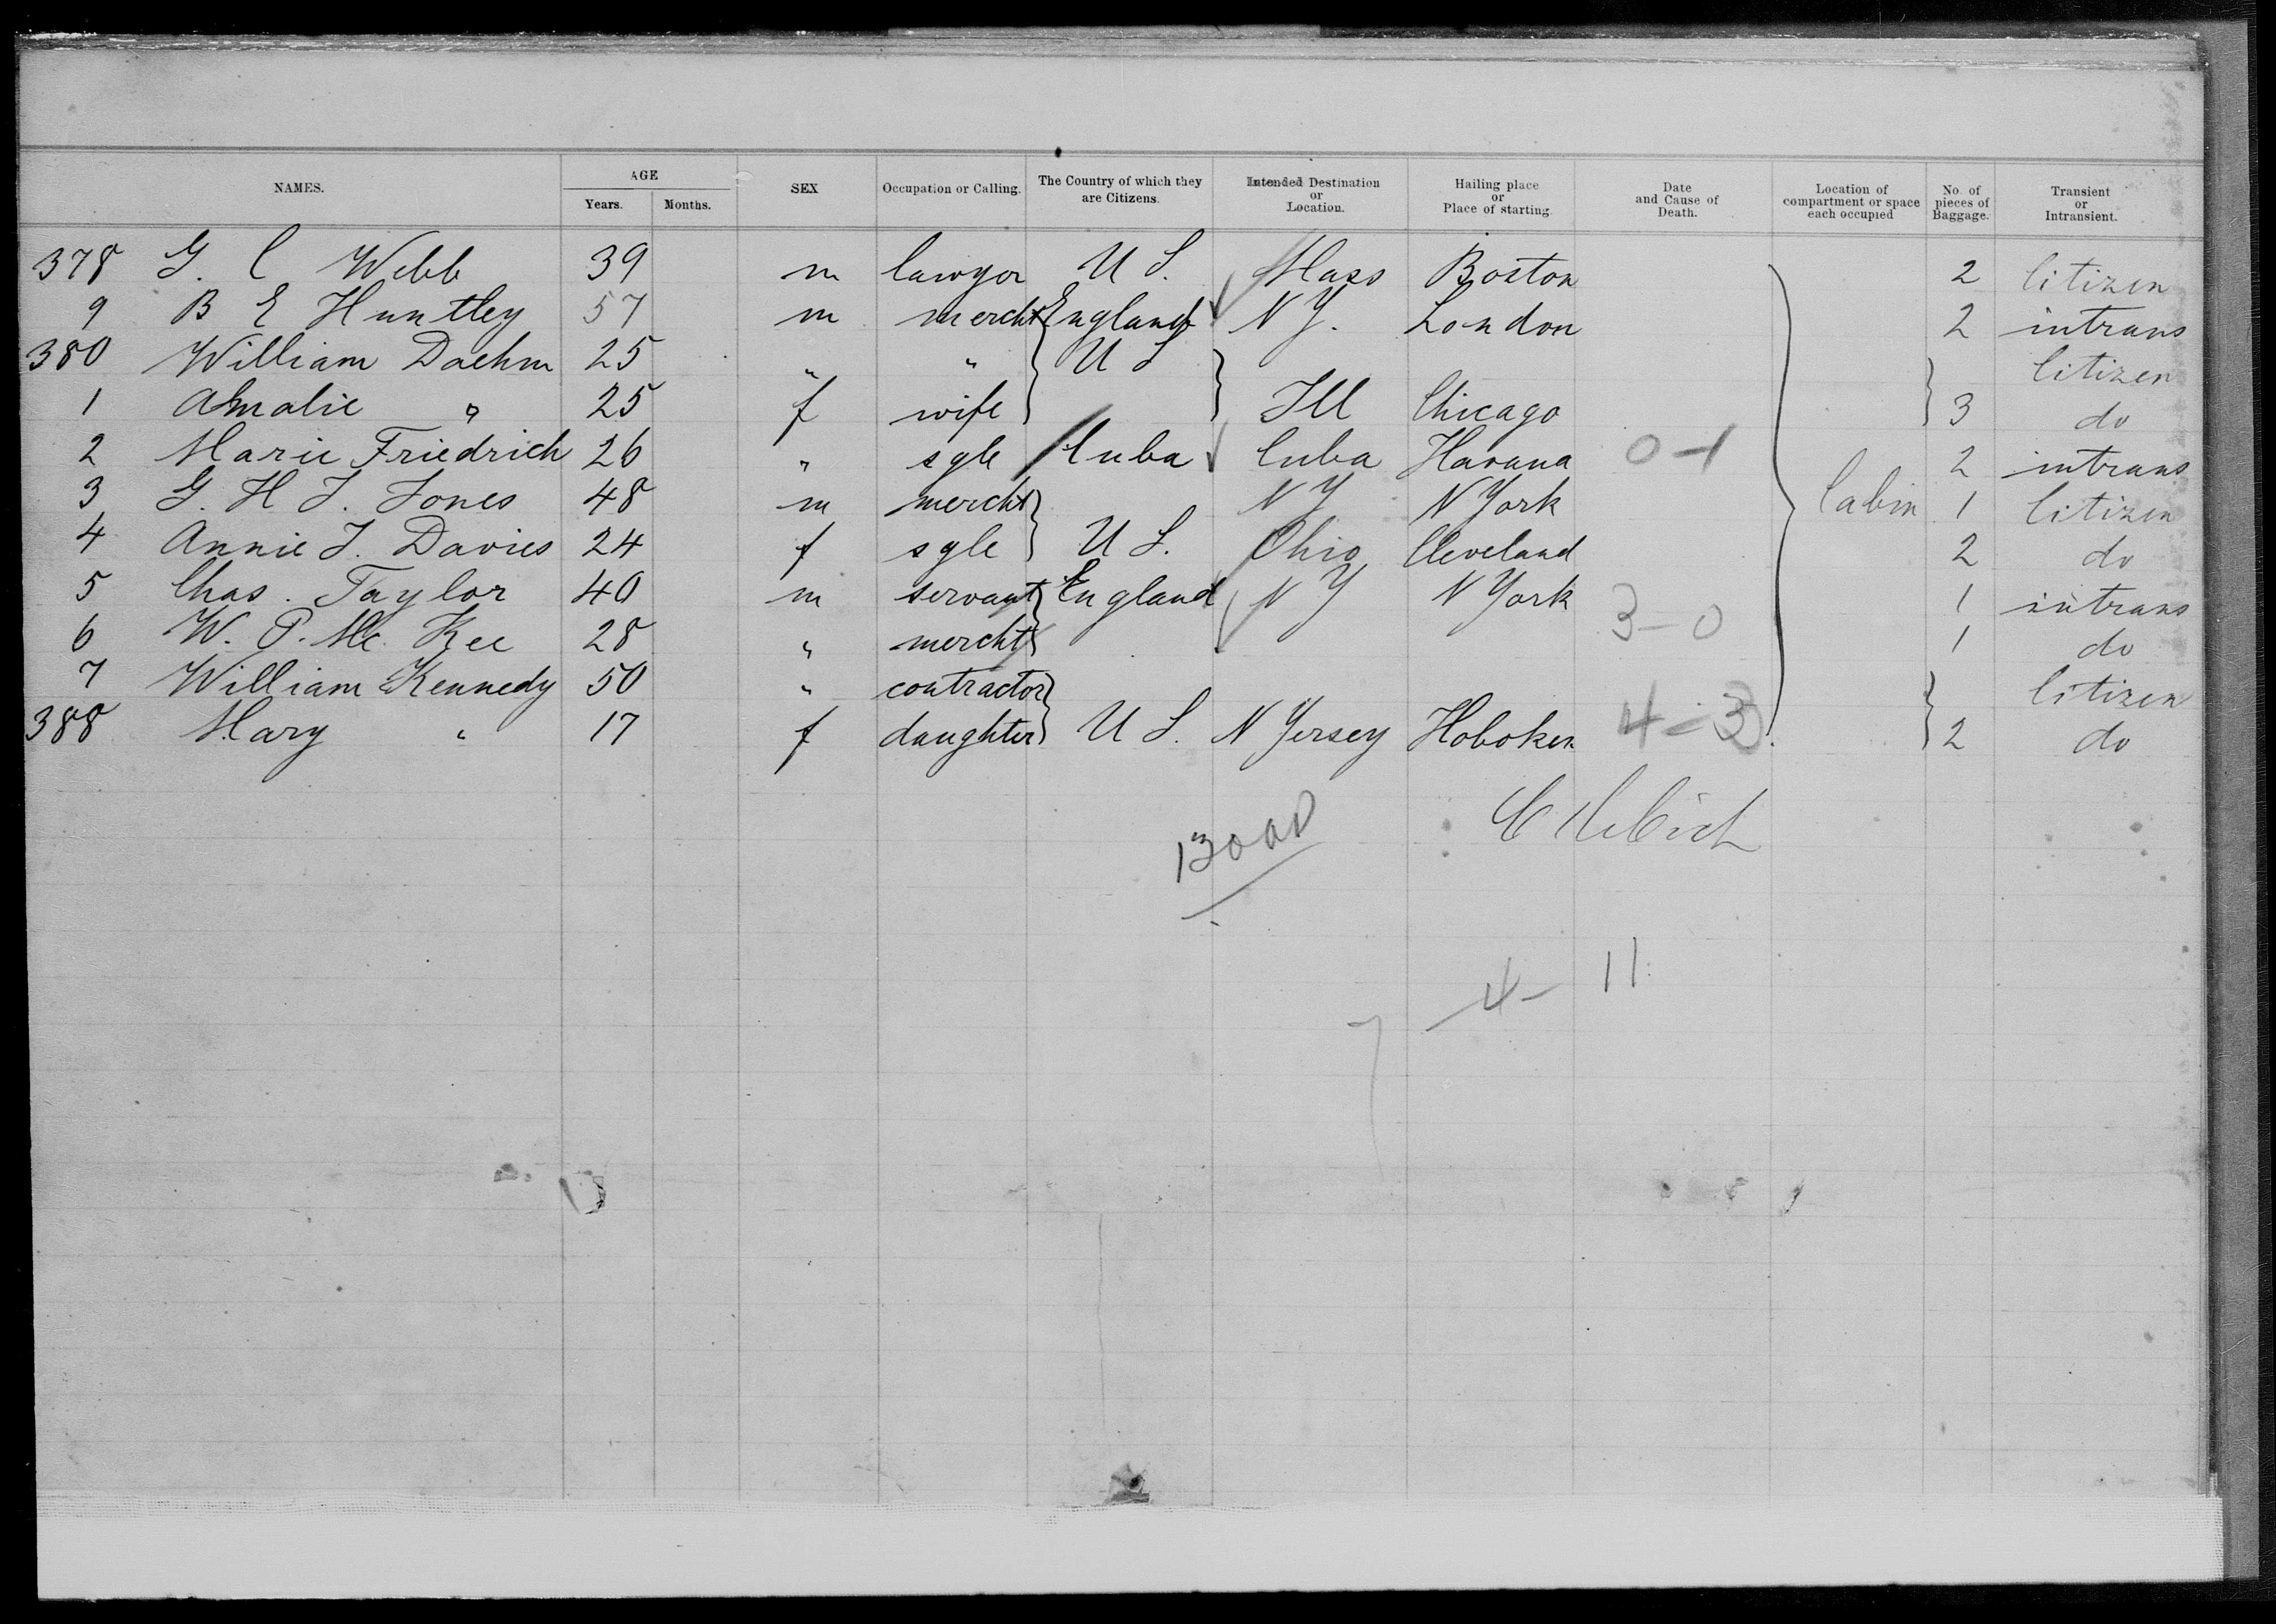 NAMES. AGE SEX Occupation or Calling. The Country of which they are Citizens. Intended Destination or Location. Hailing place or Place of starting. Date and Cause of Death. Location of compartment or space each occupied No. of pieces of Baggage. Transient or Intransient.
Years. Months.
378 G. C Webb 39 m lawyer U S. Mass Boston 2 Citizen
9 B E Huntley 57 m mercht England N Y. London 2 intrans
380 William Daehm 25 " " U S Citizen
1 Amalie " 25 f wife Ill Chicago 3 do
2 Marie Friedrich 26 " sgle Cuba Cuba Havana 0-1 2 intrans
3 G. H J. Jones 48 m mercht N Y N York Cabin 1 Citizen
4 Annie J. Davies 24 f sgle U S. Ohio Cleveland 2 do
5 Chas. Taylor 40 m servant England N Y N York 1 intrans
6 W. P. Mc. Kee 28 " mercht 3-0 1 do
7 William Kennedy 50 " contractor Citizen
388 Mary " 17 f daughter U S. N Jersey Hoboken 4-3 2 do
4- 11